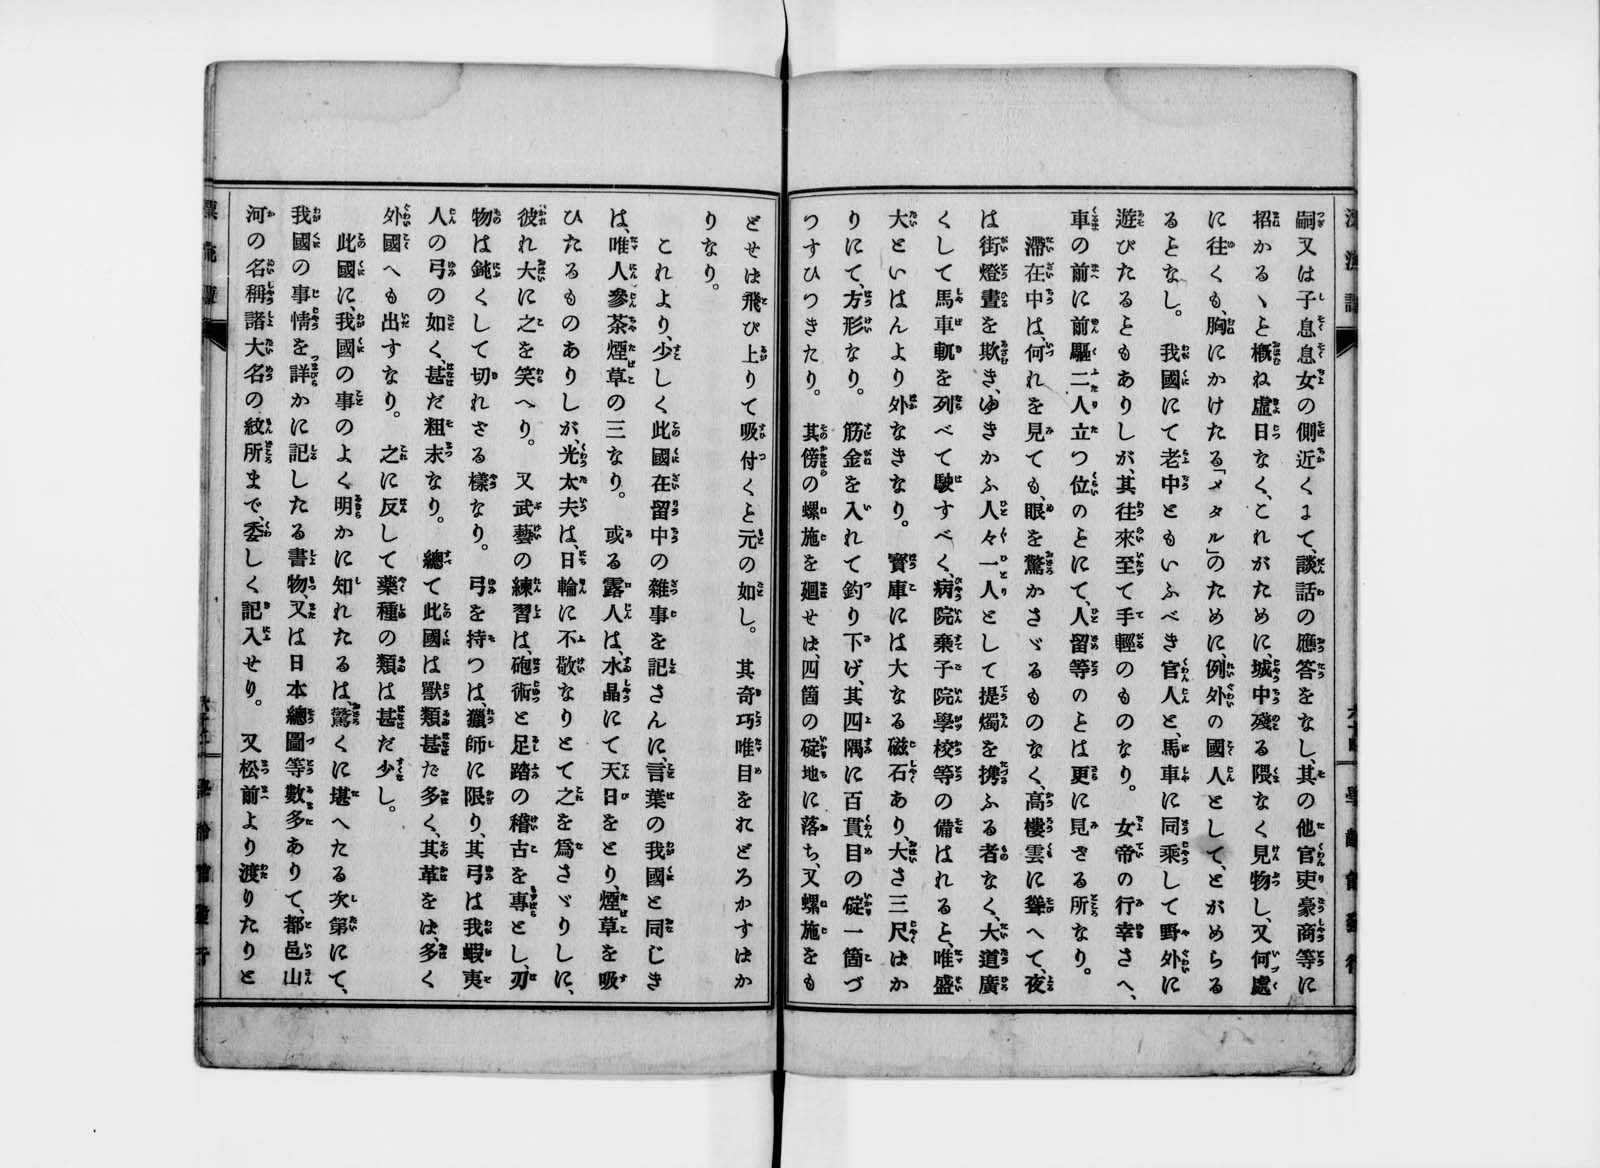 嗣又は子息息女の側近くまて、談話の應答をなし、其の他官吏豪商等に
招かるゝと槪ね虛日なく、これがために、城中殘る隈なく見物し、又何處
に往くも、胸にかけたる「メタル」のために、例外の國人として、とがめらる
るとなし。　我國にて老中ともいふべき官人と、馬車に同乘して野外に
遊びたるともありしが、其往來至て手輕のものなり。　女帝の行幸さへ、
車の前に前驅二人立つ位のとにて、人留等のとは更に見ざる所なり。
滯在中は、何れを見ても、眼を驚かさゞるものなく、高樓雲に聳へて、夜
は街燈晝を欺き、ゆきかふ人々一人として提燭を携ふる者なく、大道廣
くして馬車軌を列べて駛すべく、病院棄子院學校等の備はれると、唯盛
大といはんより外なきなり。　寳庫には大なる磁石あり、大さ三尺はか
りにて、方形なり。　筋金を入れて釣り下げ、其四隅に百貫目の碇一箇づ
つすひつきたり。　其傍の螺旋を廻せは、四箇の碇地に落ち、又螺旋をも
どせは飛び上りて吸付くと元の如し。　其奇巧唯目をれどろかすはか
りなり。
これより、少しく此國在留中の雜事を記さんに、言葉の我國と同じき
は、唯人參茶煙草の三なり。　或る露人は、水晶にて天日をとり、煙草を吸
ひたるものありしが、光太夫は、日輪に不敬なりとて之を爲さゞりしに、
彼れ大に之を笑へり。　又武藝の練習は、砲術と足踏の稽古を專とし、刃
物は鈍くして切れさる樣なり。　弓を持つは、獵師に限り、其弓は我蝦夷
人の弓の如く、甚だ粗末なり。　總て此國は獸類甚た多く、其革をは、多く
外國へも出すなり。　之に反して藥種の類は甚だ少し。
此國に、我國の事のよく明かに知れたるは、驚くに堪へたる次第にて、
我國の事情を詳かに記したる書物、又は日本總圖等數多ありて、都邑山
河の名稱諸大名の紋所まで、委しく記入せり。　又松前より渡りたりと